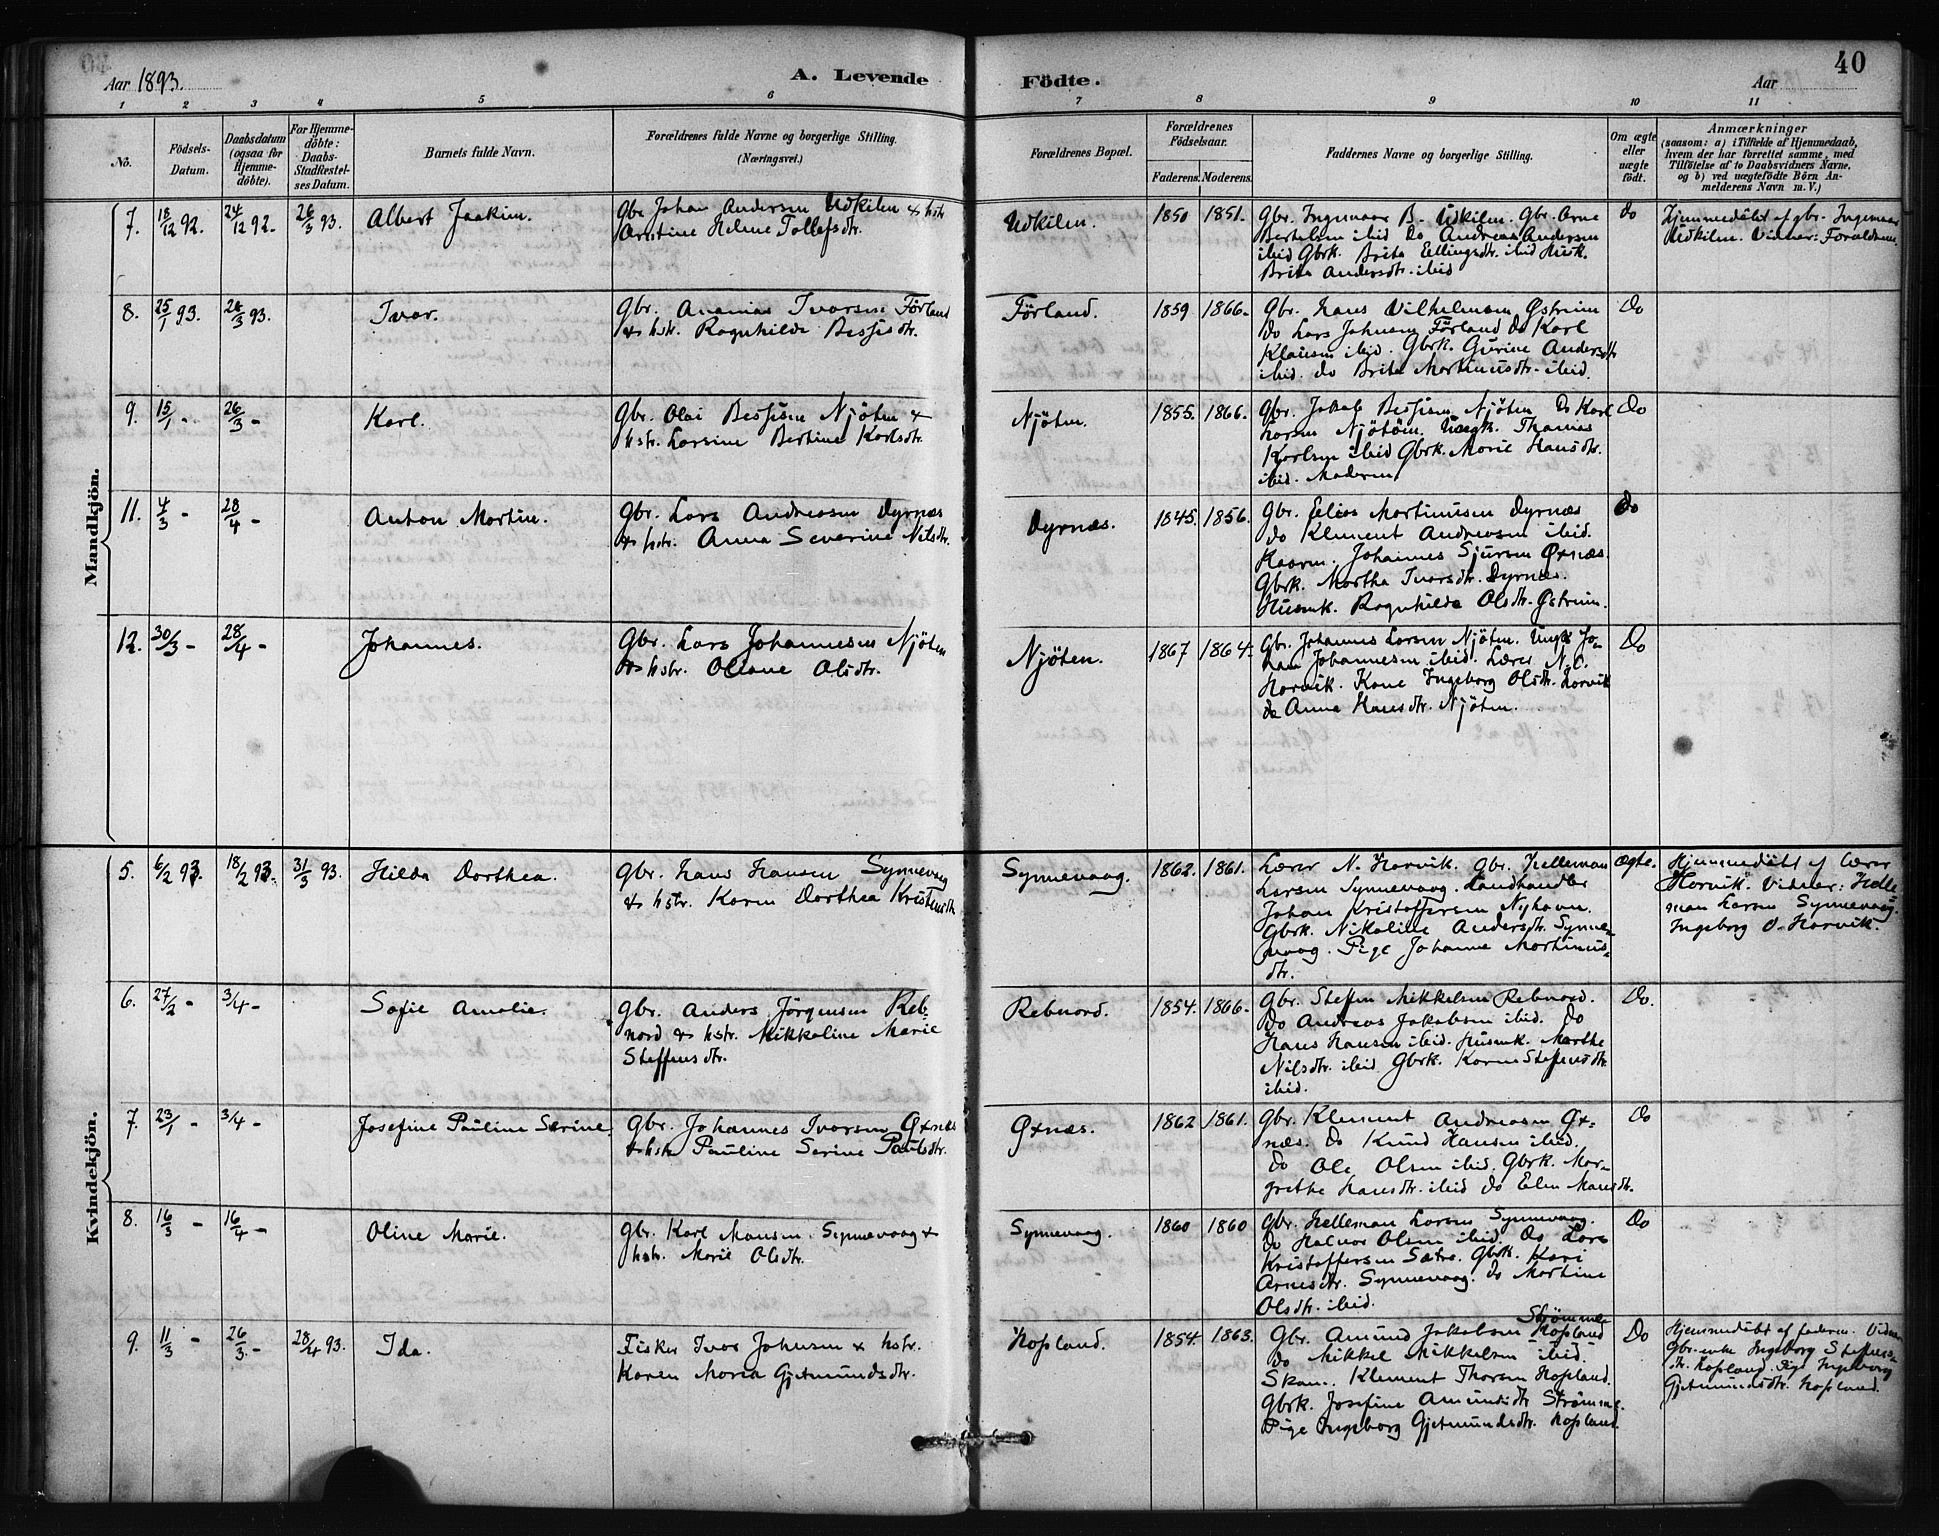 Aar 1893.
A. Levende
Födte.
Aar
40
1 2 3 4 5 6 7 8 9 10 11
No.
Födsels-
Datum.
Daabsdatum
(ogsaa for
Hjemme-
döbte).
For Hjemme-
döbte:
Daabs-
Stadfæstel-
ses Datum.
Barnets fulde Navn.
Forældrenes fulde Navne og borgerlige Stilling.
(Næringsvei.)
Forældrenes Bopæl.
Forældrenes
Födselsaar.
Faderens. Moderens.
Faddernes Navne og borgerlige Stilling.
Om ægte
eller
uægte
födt.
Anmærkninger
(saasom: a) i Tilfælde af Hjemmedaab,
hvem der har forrettet samme, med
Tilföielse af to Daabsvidners Navne,
og b) ved uægtefödte Börn An-
melderens Navn m. V.)
Mandkjön.
7. 18/12 92. 24/12 92. 26/3 93. Albert Joakim.
Gbr. Johan Andersen Udkilen & hstr
Helene Tollefsdtr.
Udkilen. 1850 1851.
Gbr. Ingemaar B. Udkilen. Gbr. Arne
Bertelsen ibid Do Andreas Andersen
ibid Gbrk. Brita Ellingsdtr. ibid Husk.
Brita Andersdtr. ibid
do
Hjemmedöbt af gbr. Ingemaar
Udkilen. Vidner: Forældrene.
8. 25/1 93. 26/3 93. Ivar.
Gbr. Ananias Ivarsen Förland
& hstr. Ragnhilde Bessesdtr.
Förland. 1859 1866.
Gbr. Hans Vilhelmsen Østreim
do Lars Johnsen Förland do Karl
Klausen ibid. Gbrk. Gurine Andersdtr
ibid. do Brita Martinusdtr. ibid.
Do
9. 15/1 - 26/3 - Karl.
Gbr. Olai Bessesen Njöten &
hstr. Larsine Bertine Karlsdtr.
Njöten. 1855. 1866.
Gbr. Jakob Bessesen Njöten Do Karl
Larsen Njöten. Ungk. Thomas
Karlsen ibid Gbrk. Marie Hansdtr.
ibid. Moderen
Do
11. 4/3 - 28/4 - Anton Martin.
Gbr. Lars Andreasen Dyrnæs
& hstr. Anna Severine Nilsdtr.
Dyrnæs. 1845. 1856.
Gbr. Elias Martinusen Dyrnæs
do Klement Andreasen ibid.
Johannes Sjursen Øxnæs.
Gbrk. Martha Ivarsdtr. Dyrnæs.
Husmk. Ragnhilda Olsdtr. Østreim.
Do
12. 30/3 - 28/4 - Johannes.
Gbr. Lars Johannesen Njöten
& hstr. Oliane Olsdtr.
Njöten. 1867 1864.
Gbr. Johannes Larsen Njöten. Ungk Jo-
han Johannesen ibid. Lærer N. O.
Horvik. Kone Ingeborg Olsdtr. Horvik
do Anna Hansdtr. Njöten.
Do
Kvindekjön.
5. 6/2 93. 18/2 93. 31/3 93. Hilda Dorthea.
Gbr. Hans Hansen Synnevaag
& hstr. Karen Dorthea Kristensdtr
Synnevaag. 1862. 1861.
Lærer N. Horvik. Gbr. Helleman
Larsen Synnevaag. Landhandler
Johan Kristoffersen Nyhavn.
Gbrk. Nikoline Andersdtr. Synne-
vaag. Pige Johanne Martinus-
dtr.
ægte.
Hjemmedöbt af Lærer
Horvik. Vidner: Helle-
man Larsen Synnevaag.
Ingeborg O. Horvik.
6. 27/2 - 3/4 - Sofie Amalie.
Gbr. Anders Jörgensen Reb-
nord & hstr. Mikkaline Marie
Steffensdtr.
Rebnord. 1854. 1866.
Gbr. Steffen Mikkelsen Rebnord.
Do Andreas Jakobsen ibid. Do
Hans Hansen ibid. Husmk. Marthe
Nilsdtr. ibid Gbrk. Karen Steffensdtr
ibid.
Do.
7. 23/1 - 3/4 - Josefine Pauline Serine.
Gbr. Johannes Ivarsen Øxnæs
& hstr Pauline Serine Paulsdtr.
Øxnæs. 1862 1861.
Gbr. Klement Andreasen Øx-
næs. Do Knud Hansen ibid.
do Ole Olsen ibid. Gbrk. Mar-
grethe Hansdtr. ibid do Elen Mansdtr.
Do
8. 16/3 - 16/4 - Oline Marie.
Gbr. Karl Monsen Synnevaag &
hstr. Marie Olsdtr.
Synnevaag. 1860 1860
Gbr. Helleman Larsen Synnevaag.
do Halvor Olsen ibid. Do Lars
Kristoffersen Sætre. Gbrk. Kari
Arnesdtr. Synnevaag. do Martine
Olsdtr. ibid.
Do
9. 11/3 - 26/3 - 28/4 93. Ida.
Fisker Ivar Johnsen & hstr.
Karen Maria Gjetmundsdtr.
Hopland. 1854. 1863.
Strömme
Gbr. Amund Jakobsen Hopland
do Mikkel Mikkelsen ibid.
Klement Thorsen Hopland.
Gbrk. Josefine Amundsdtr Strömme.
Pige Ingeborg Gjetmundsdtr. Hopland
Do
Hjemmedöbt af faderen. Vidner
Gbr.enke Ingeborg Steffens-
dtr. Hopland. Pige Ingeborg
Gjetmundsdtr. Hopland.